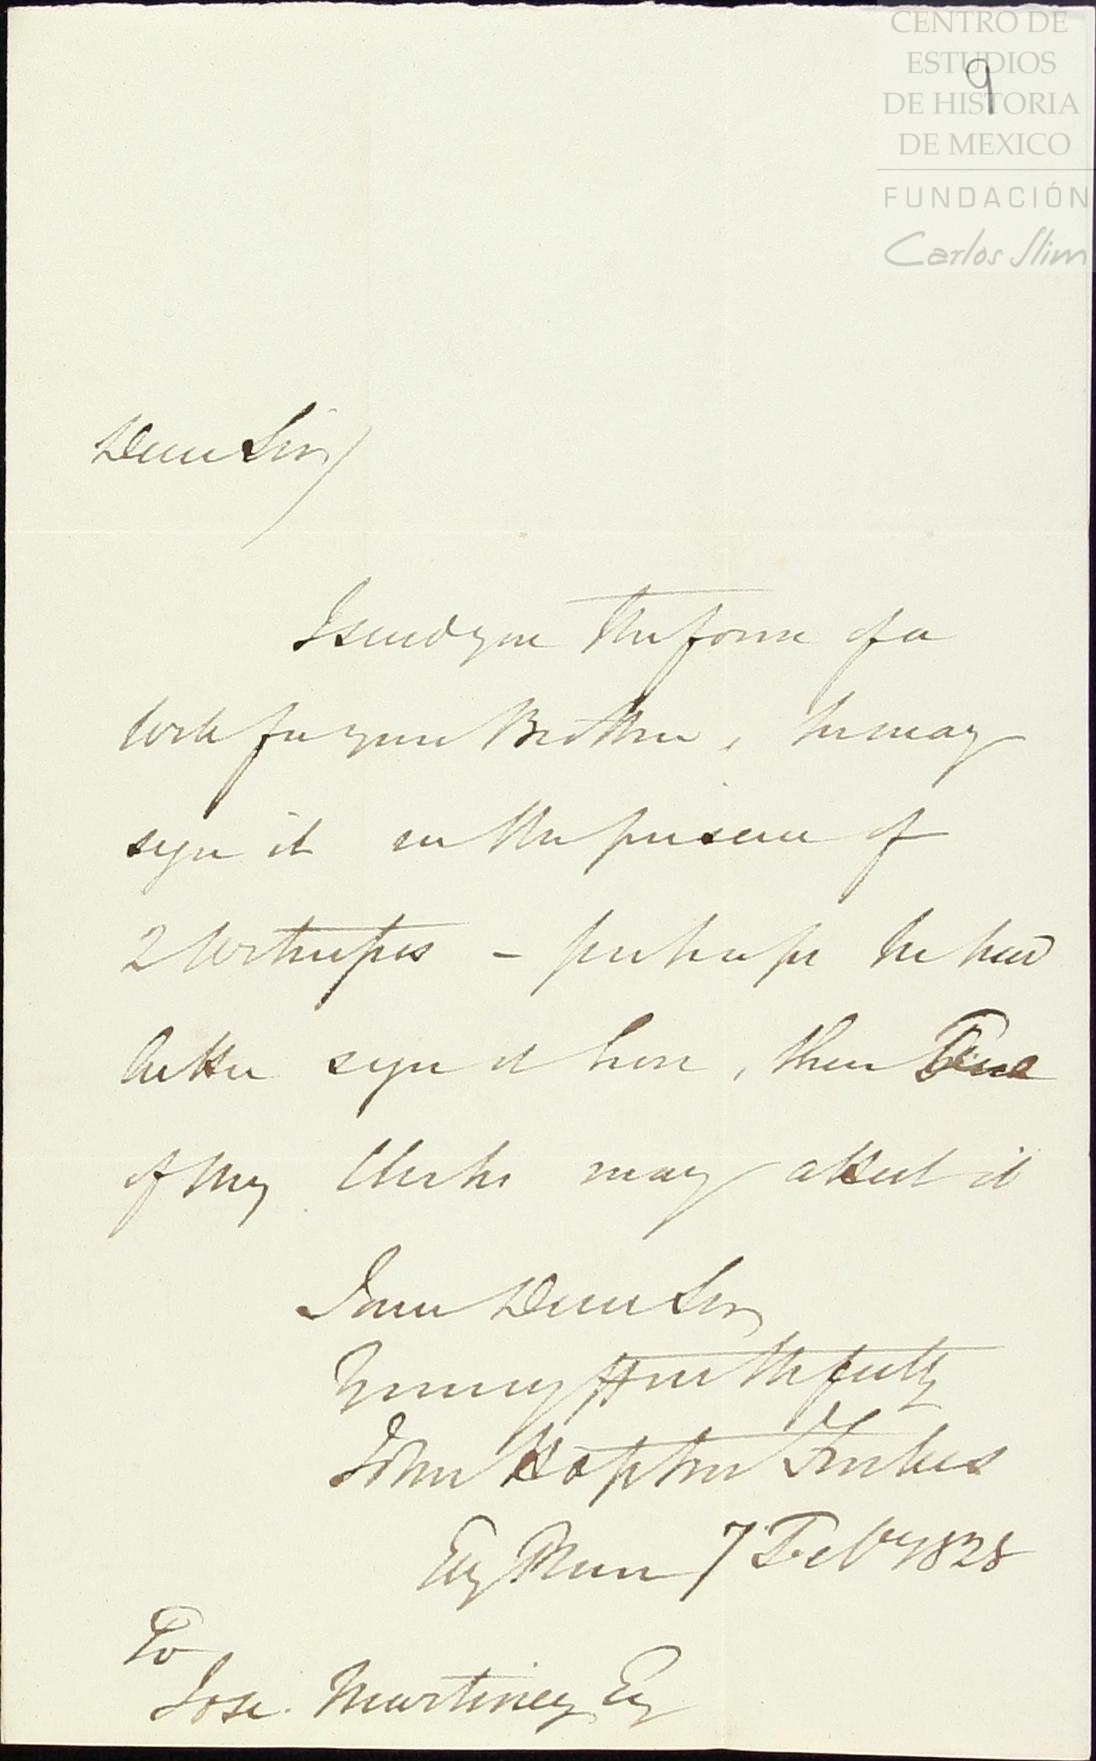 CENTRO DE
ESTUDIOS
DE HISTORIA
DE MEXICO
FUNDACIÓN
Carlos Slim
9
Dear Sir
I send you the form of a
for your Brother, he may
sign it in the presence of
2 Witnesses - perhaps he had
better sign it here, then
of my Clerks may attest it
I am Dear Sir
Yours faithfully
John Hopton Forbes
Ely Place 7 Feby 1828
To
Jose. Martinez Esq